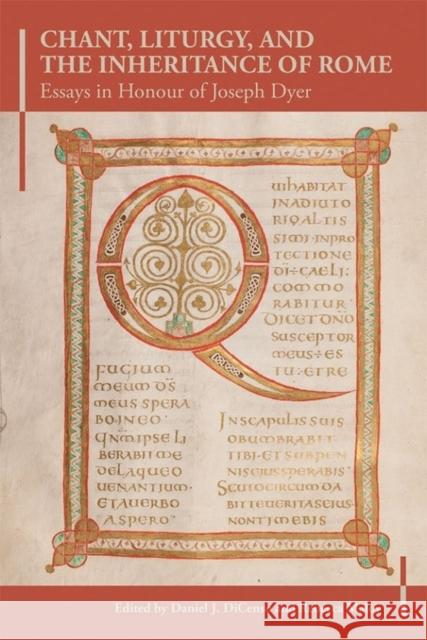 CHANT, LITURGY, AND
THE INHERITANCE OF ROME
Essays in Honour of Joseph Dyer
QUIHABITAT
INADIUTO
RIOALTIS
SIMI·INPRO
TECTIONE
D̄I÷CAELI:
COMMO
RABITUR
DICETDN̄O
SUSCEPTOR
MEUS÷ES
TU:ETRE
FUGIUM
MEUMD̄S
MEUSSPERA
BOINEO·
QNMIPSELI
BERABITME
DELAQUEO
UENANTIUM·
ETAUERBO
ASPERO
INSCAPULISSUIS
OBUMBRABIT
TIBI·ETSUBPEN
NISEIUSSPERABIS·
SCUTOCIRCUMDA
BITTEUERITASEIUS·
NONTIMEBIS
Edited by Daniel J.